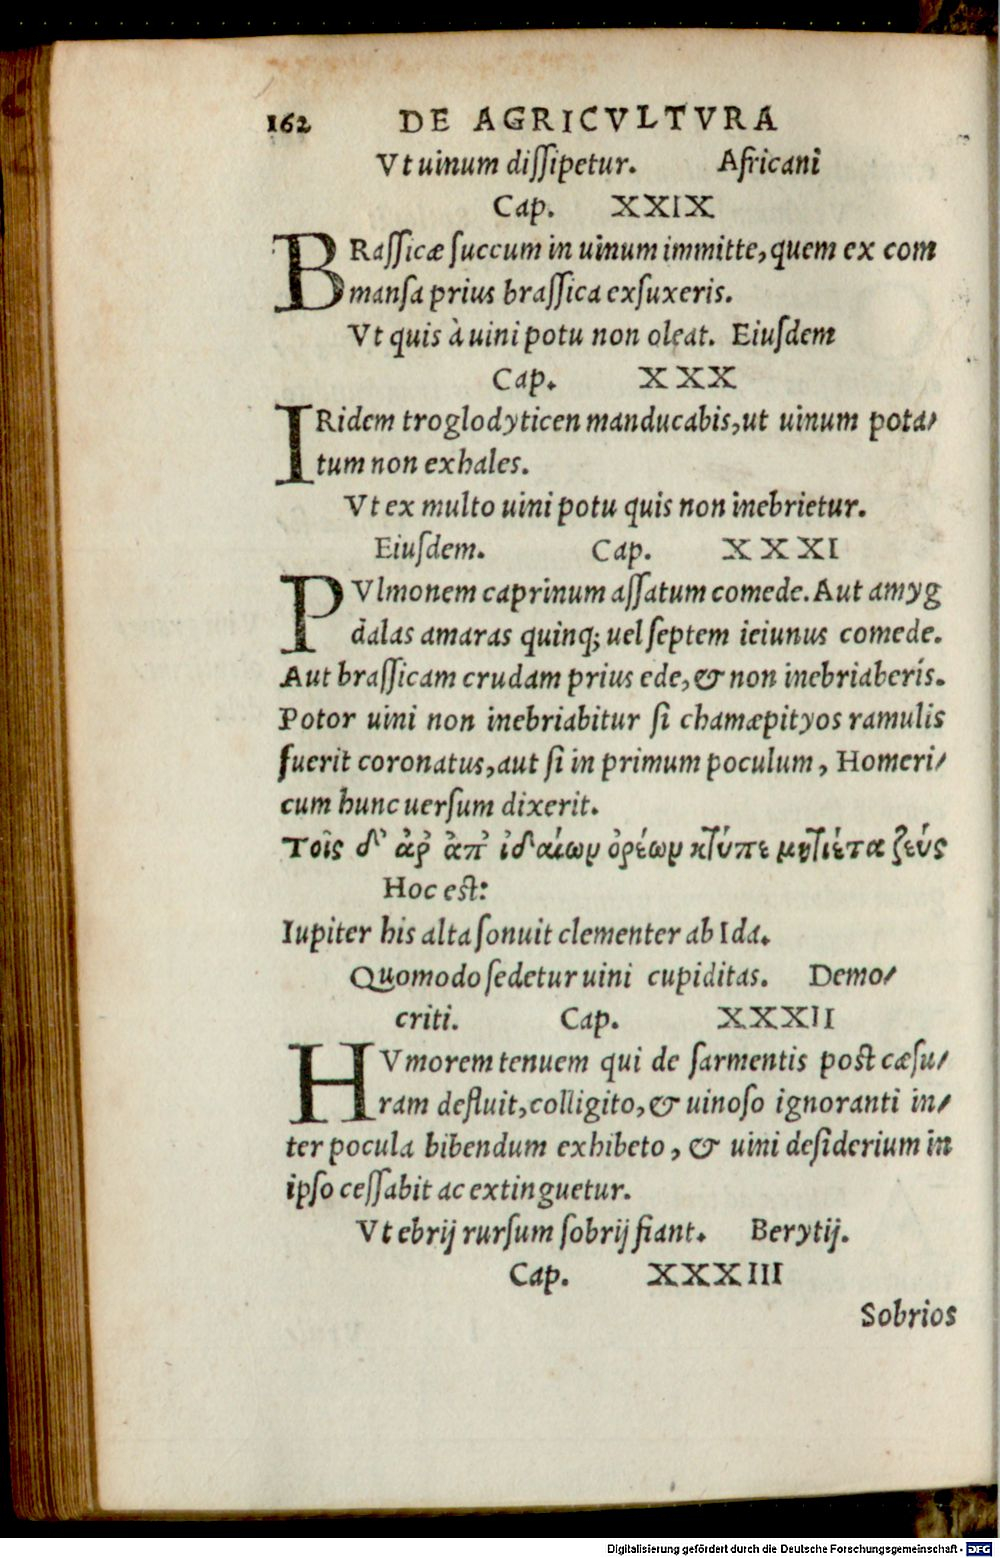 162 DE AGRICVLTVRA
Vt uinum dissipetur. Africani
Cap. XXIX
BRassicæ succum in uinum immitte, quem ex com
mansa prius brassica exsuxeris.
Vt quis à uini potu non oleat. Eiusdem
Cap. XXX
IRidem troglodyticen manducabis, ut uinum pota/
tum non exhales.
Vt ex multo uini potu quis non inebrietur.
Eiusdem. Cap. XXXI
PVlmonem caprinum assatum comede. Aut amyg
dalas amaras quinq; uel septem ieiunus comede.
Aut brassicam crudam prius ede, & non inebriaberis.
Potor uini non inebriabitur si chamæpityos ramulis
fuerit coronatus, aut si in primum poculum, Homeri/
cum hunc uersum dixerit.
Τοῖς δ' ἀρ' ἀπ' ἰδαίων ὀρέων κτύπε μητίετα ζεύς
Hoc est:
Iupiter his alta sonuit clementer ab Ida.
Quomodo sedetur uini cupiditas. Demo/
criti. Cap. XXXII
HVmorem tenuem qui de sarmentis post cæsu/
ram defluit, colligito, & uinoso ignoranti in/
ter pocula bibendum exhibeto, & uini desiderium in
ipso cessabit ac extinguetur.
Vt ebrij rursum sobrij fiant. Berytij.
Cap. XXXIII
Sobrios
Digitalisierung gefördert durch die Deutsche Forschungsgemeinschaft - DFG